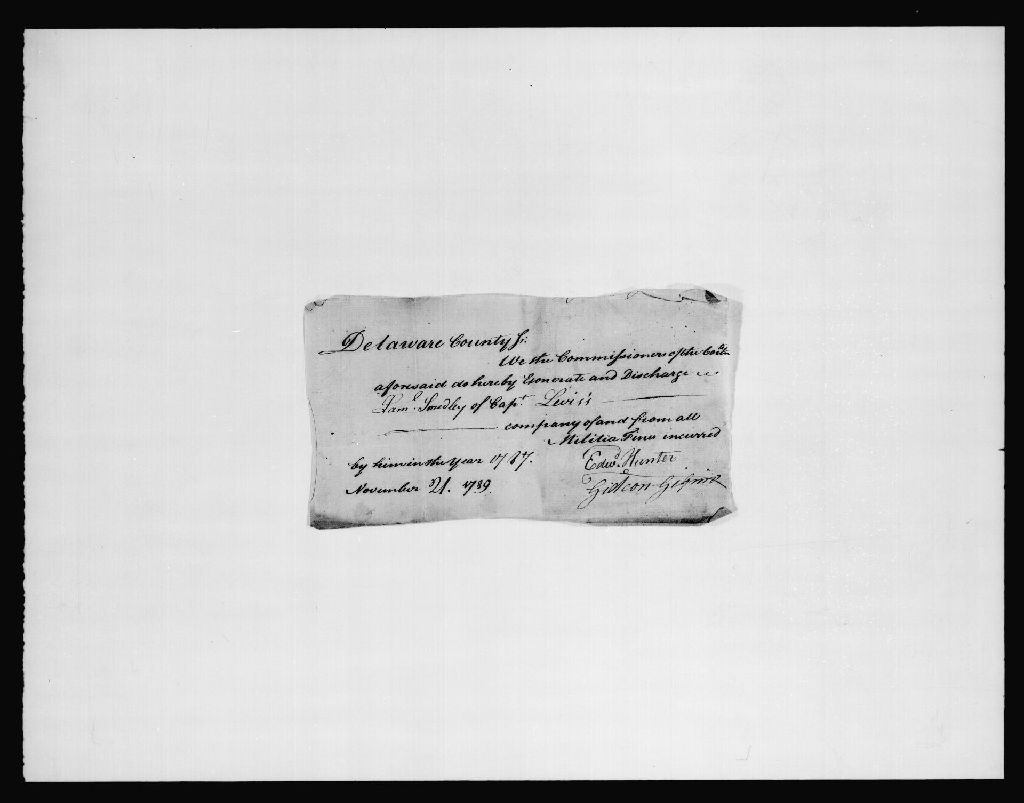 Delaware County ſs.
We the Commissioners of the County
aforesaid do hereby Exonerate and Discharge
Saml. Smedley of Capt. Levis's
company of and from all
Militia Fines incurred
by him in the Year 1787.
November 21. 1789
Edwd. Hunter
Gideon Gilpin